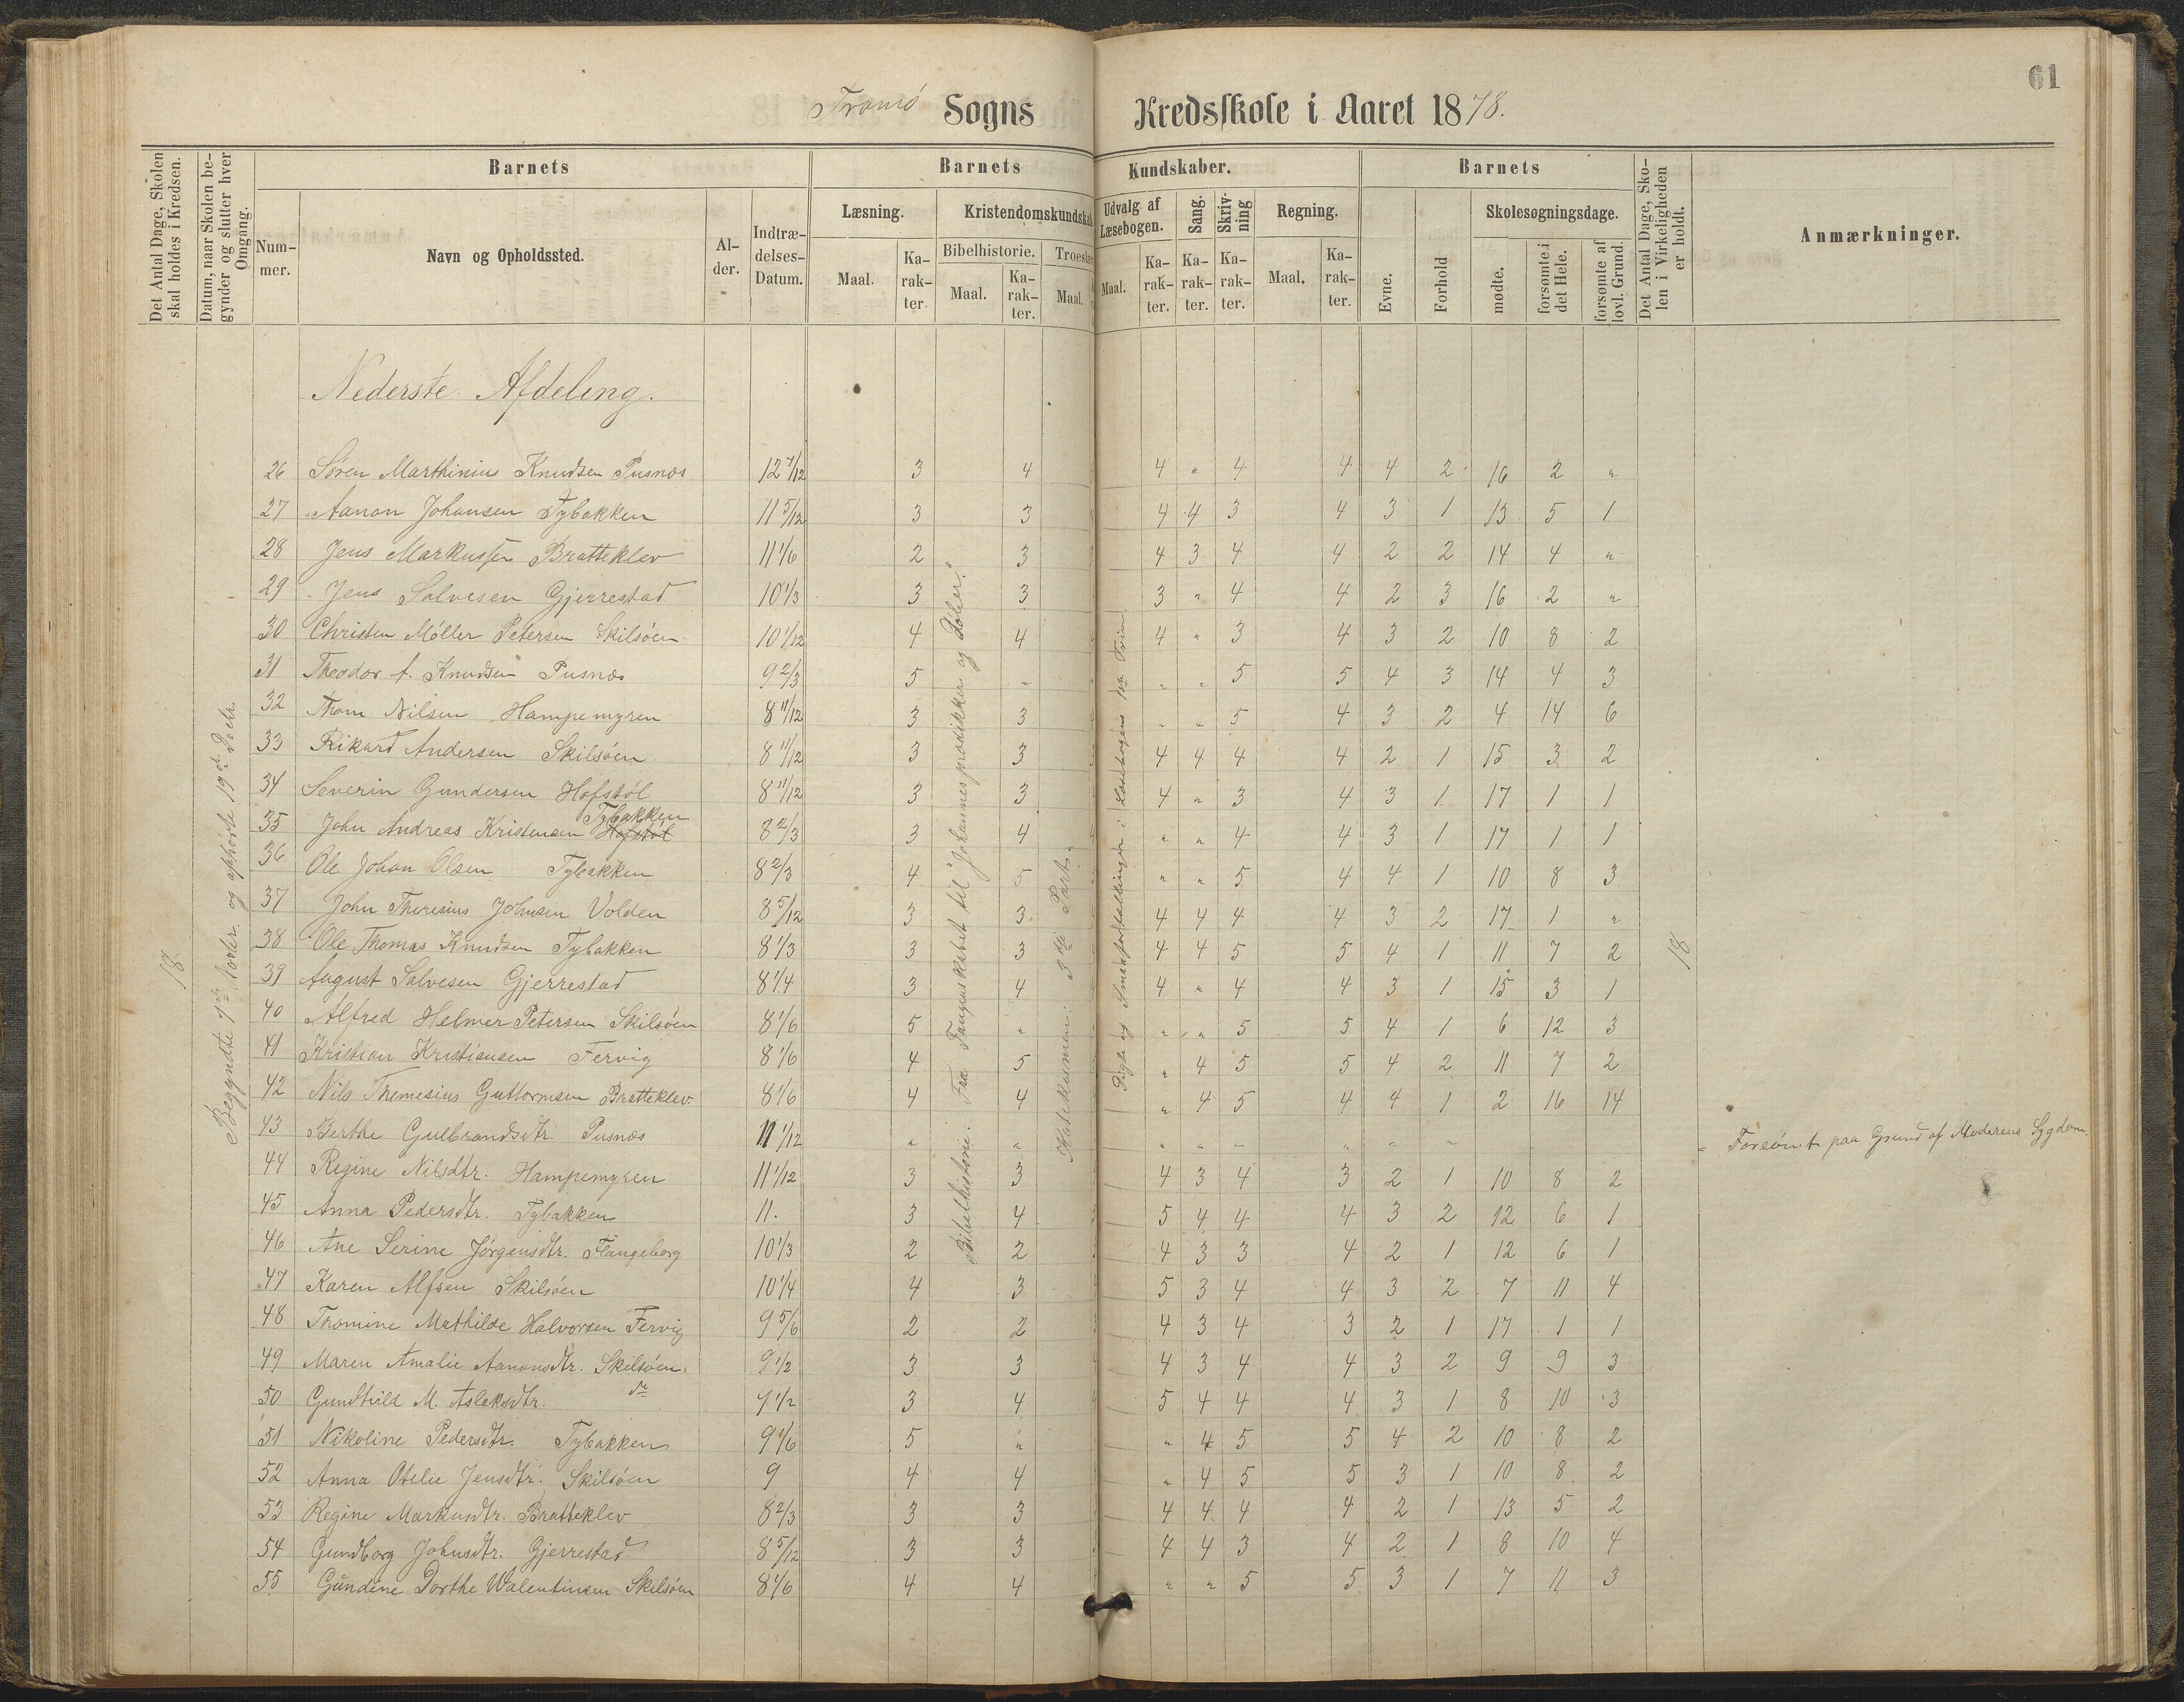 61
Tromö Sogns Kredsskole i Aaret 1878.
Det Antal Dage, Skolen skal holdes i Kredsen.
Datum, naar Skolen begynder og slutter hver Omgang.
Barnets
Nummer.
Navn og Opholdssted.
Alder.
Indtrædelses-Datum.
Barnets Kundskaber.
Læsning.
Maal.
Karakter.
Kristendomskundskab
Bibelhistorie.
Maal.
Karakter.
Troeslære
Maal.
Udvalg af Læsebogen.
Maal.
Karakter.
Sang.
Karakter.
Skrivning
Karakter.
Regning.
Maal.
Karakter.
Barnets
Evne.
Forhold
Skolesøgningsdage.
mødte.
forsømte i det Hele.
forsømte af lovl. Grund.
Det Antal Dage, Skolen i Virkeligheden er holdt.
Anmærkninger.
Nederste Afdeling.
18.
Begyndte 7de Novbr. og ophørte 19de Decbr.
Bibelhistorie: Fra Fangenskabet til "Johannes prædikker og Døber."
Katekismen: 3die Part.
18
26 Søren Marthinius Knudsen Pusnæs 12 7/12 3 4 4 " 4 4 4 2 16 2 "
27 Aanon Johansen Tybakken 11 5/12 3 3 4 4 3 4 3 1 13 5 1
28 Jens Markussen Bratteklev 11 1/6 2 3 4 3 4 4 2 2 14 4 "
29 Jens Salvesen Gjerrestad 10 1/3 3 3 3 " 4 4 2 3 16 2 "
30 Christen Møller Petersen Skilsöen 10 1/12 4 4 4 " 3 4 3 2 10 8 2
31 Theodor A. Knudsen Pusnæs 9 2/3 5 " " " 5 5 4 3 14 4 3
32 Thom Nilsen Hampemyren 8 11/12 3 3 " " 5 4 3 2 4 14 6
33 Rikard Andersen Skilsöen 8 11/12 3 3 4 4 4 4 2 1 15 3 2
34 Severin Gundersen Hofstøl 8 11/12 3 3 4 " 3 4 3 1 17 1 1
35 John Andreas Kristensen Hofstøl Tybakken 8 2/3 3 4 " " 4 4 3 1 17 1 1
36 Ole Johan Olsen Tybakken 8 2/3 4 5 " " 5 4 4 1 10 8 3
37 John Theresius Johnsen Volden 8 5/12 3 3 4 4 4 4 3 2 17 1 "
38 Ole Thomas Knudsen Tybakken 8 1/3 3 3 4 4 5 5 4 1 11 7 2
39 August Salvesen Gjerrestad 8 1/4 3 4 4 " 4 4 3 1 15 3 1
40 Alfred Helmer Petersen Skilsöen 8 1/6 5 " " " 5 5 4 1 6 12 3
41 Kristian Kristiansen Fervig 8 1/6 4 5 " 4 5 5 4 2 11 7 2
42 Nils Themesius Guttormsen Bratteklev 8 1/6 4 4 " 4 5 4 4 1 2 16 14
43 Berthe Gulbrandsdtr. Pusnæs 11 1/12 " " " " " " " " " Forsömt paa Grund af Moderens Sygdom.
44 Regine Nilsdtr. Hampemyren 11 1/12 3 3 4 3 4 3 2 1 10 8 2
45 Anna Pedersdtr. Tybakken 11. 3 4 5 4 4 4 3 2 12 6 1
46 Ane Serine Jørgensdtr. Flangeborg 10 1/3 2 2 4 3 3 4 2 1 12 6 1
47 Karen Alfsen Skilsöen 10 1/4 4 3 5 3 4 4 3 2 7 11 4
48 Thomine Mathilde Halvorsen Fervig 9 5/6 2 2 4 3 4 3 2 1 17 1 1
49 Maren Amalie Aanonsdtr. Skilsöen. 9 1/2 3 3 4 3 4 4 3 2 9 9 3
50 Gundhild M. Aslaksdtr. do 9 1/2 3 4 5 4 4 4 3 1 8 10 3
51 Nikoline Pedersdtr. Tybakken 9 1/6 5 " " 4 5 5 4 2 10 8 2
52 Anna Otelie Jensdtr. Skilsöen 9 4 4 " 4 5 5 3 1 10 8 2
53 Regine Markusdtr. Bratteklev 8 2/3 3 3 4 4 4 4 2 1 13 5 2
54 Gundborg Johnsdtr. Gjerrestad 8 5/12 3 3 4 4 3 4 2 1 8 10 4
55 Gundine Dorthe Walentinsen Skilsöen 8 1/6 4 4 " " 5 5 3 1 7 11 3